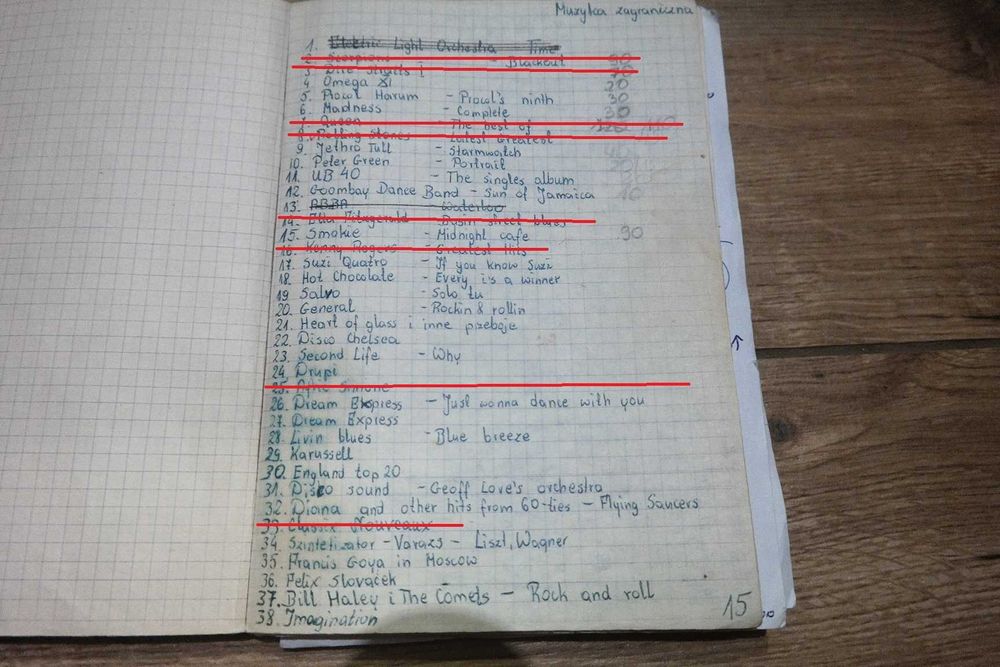 Muzyka zagraniczna
1. Electric Light Orchestra Time
2. Scorpions - Blackout 90
3 Dire Straits i
4 Omega XI 20
5. Procol Harum - Procol's ninth 30
6. Madness - Complete 30
7. Queen - The best of
8. Rolling Stones - Latest Greatest
9. Jethro Tull - Starmwatch
10. Peter Green - Portrait
11. UB 40 - The singles album
12. Goombay Dance Band - Sun of Jamaica
13. ABBA - Waterloo
14. Ella Fitzgerald - Basin street blues
15. Smokie - Midnight cafe 90
16. Kenny Rogers - Greatest Hits
17. Suzi Quatro - If you know Suzi
18. Hot Chocolate - Every 1's a winner
19 Salvo - Solo tu
20. General - Rockin & rollin
21. Heart of glass i inne przeboje
22. Disco Chelsea
23. Second Life - Why
24. Drupi
25. Afric Simone
26. Dream Express - Just wanna dance with you
27. Dream Express
28. Livin blues - Blue breeze
29. Karussell
30. England top 20
31. Disco sound - Geoff Love's orchestra
32. Diana and other hits from 60-ties - Flying Saucers
33. Classix Nouveaux
34. Szintetizator - Varazs - Liszt, Wagner
35. Francis Goya in Moscow
36. Felix Slovaček
37. Bill Haley i The Comets - Rock and roll
38. Imagination
15